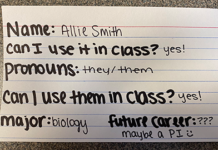 Name: Allie Smith
can I use it in class? yes!
pronouns: they/them
can I use them in class? yes!
major: biology future career: ???
maybe a PI